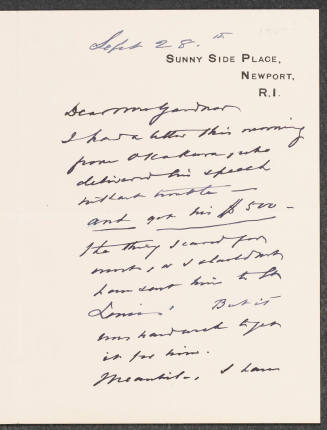 Sept 28.th
SUNNY SIDE PLACE,
NEWPORT,
R.I.
Dear Mrs Gardner
I had a letter this morning
from Okakura, who
delivered his speech
without trouble —
and got his $500 —
the thing I cared for
most, or I should not
have sent him to St
Louis. But it
was hard work to get
it for him.
Meantime, I have